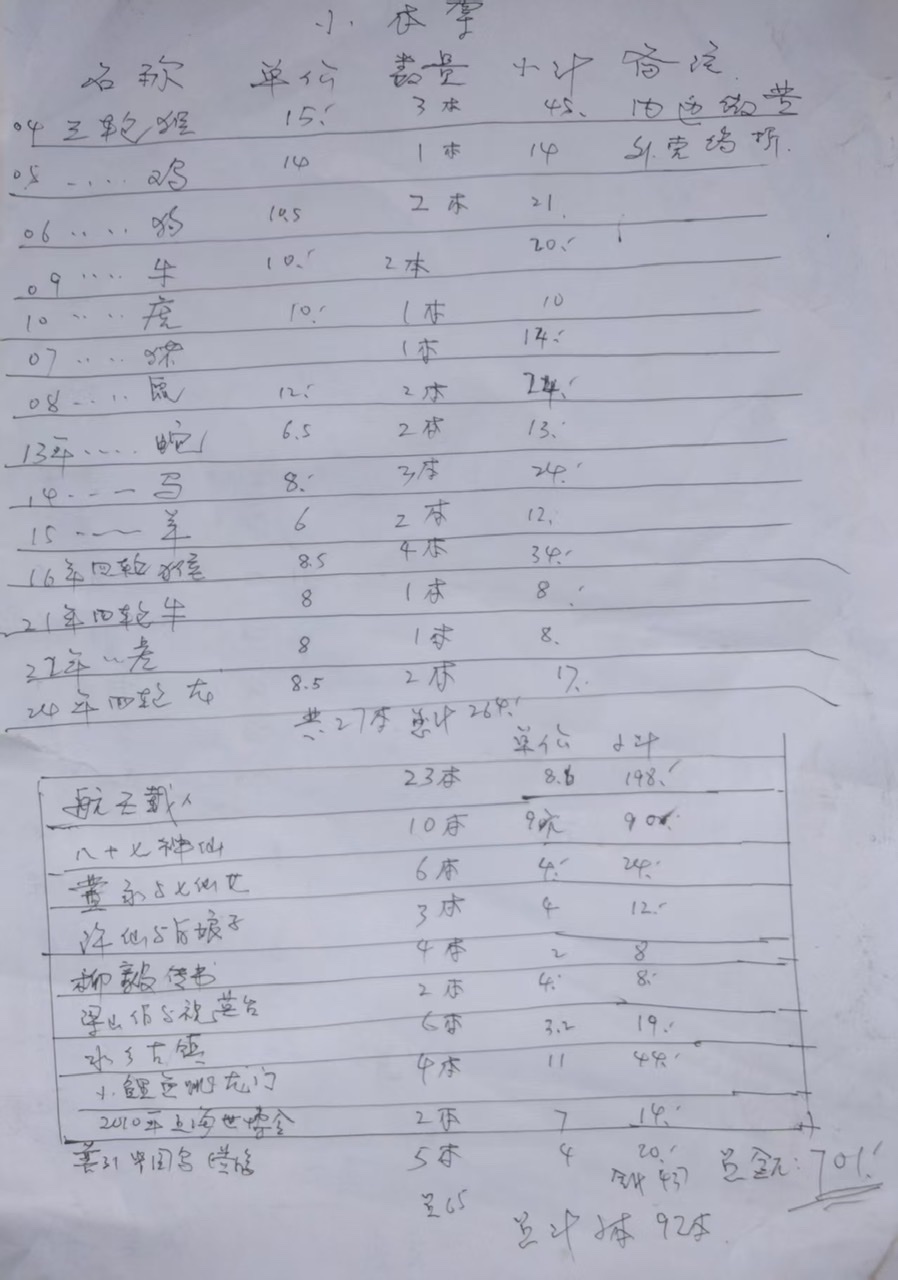 小本票
名称 单价 数量 小计 备注
04 三轮猴 15. 3本 45. 内
05 ..... 鸡 14 1本 14
06 ..... 狗 10.5 2本 21.
09 .... 牛 10. 2本 20.
10 .... 虎 10. 1本 10
07 .... 1本 14.
08 .... 鼠 12. 2本 24.
13年.... 蛇 6.5 2本 13.
14 .... 马 8. 3本 24.
15 .... 羊 6 2本 12.
16年四轮猴 8.5 4本 34.
21年四轮牛 8 1本 8.
22年..虎 8 1本 8.
24年四轮龙 8.5 2本 17.
共27本 总计264.
单价 小计
航天载人 23本 8.6 198.
八十七神仙 10本 9元 90.
董永与七仙女 6本 4. 24.
许仙与白娘子 3本 4 12.
柳毅传书 4本 2 8
梁山伯与祝英台 2本 4. 8.
水乡古镇 6本 3.2 19.
小鲤鱼跳龙门 4本 11 44.
2010年上海世博会 2本 7 14.
中国鸟 5本 4 20.
合计 437 总金元: 701.
总65
总计 本 92本